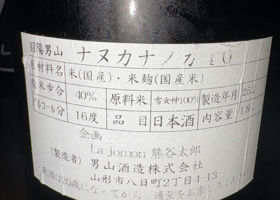 羽陽男山 ナヌカナノカ
原材料名 米(国産)・米麹(国産米)
精米歩合 40% 原料米 雪女神100% 製造年月
アルコール分 16度 品目 日本酒 内容量 1.8
企画
La Jomon 熊谷太郎
(製造者) 男山酒造株式会社
山形市八日町2丁目4-13
飲酒は20歳になってから